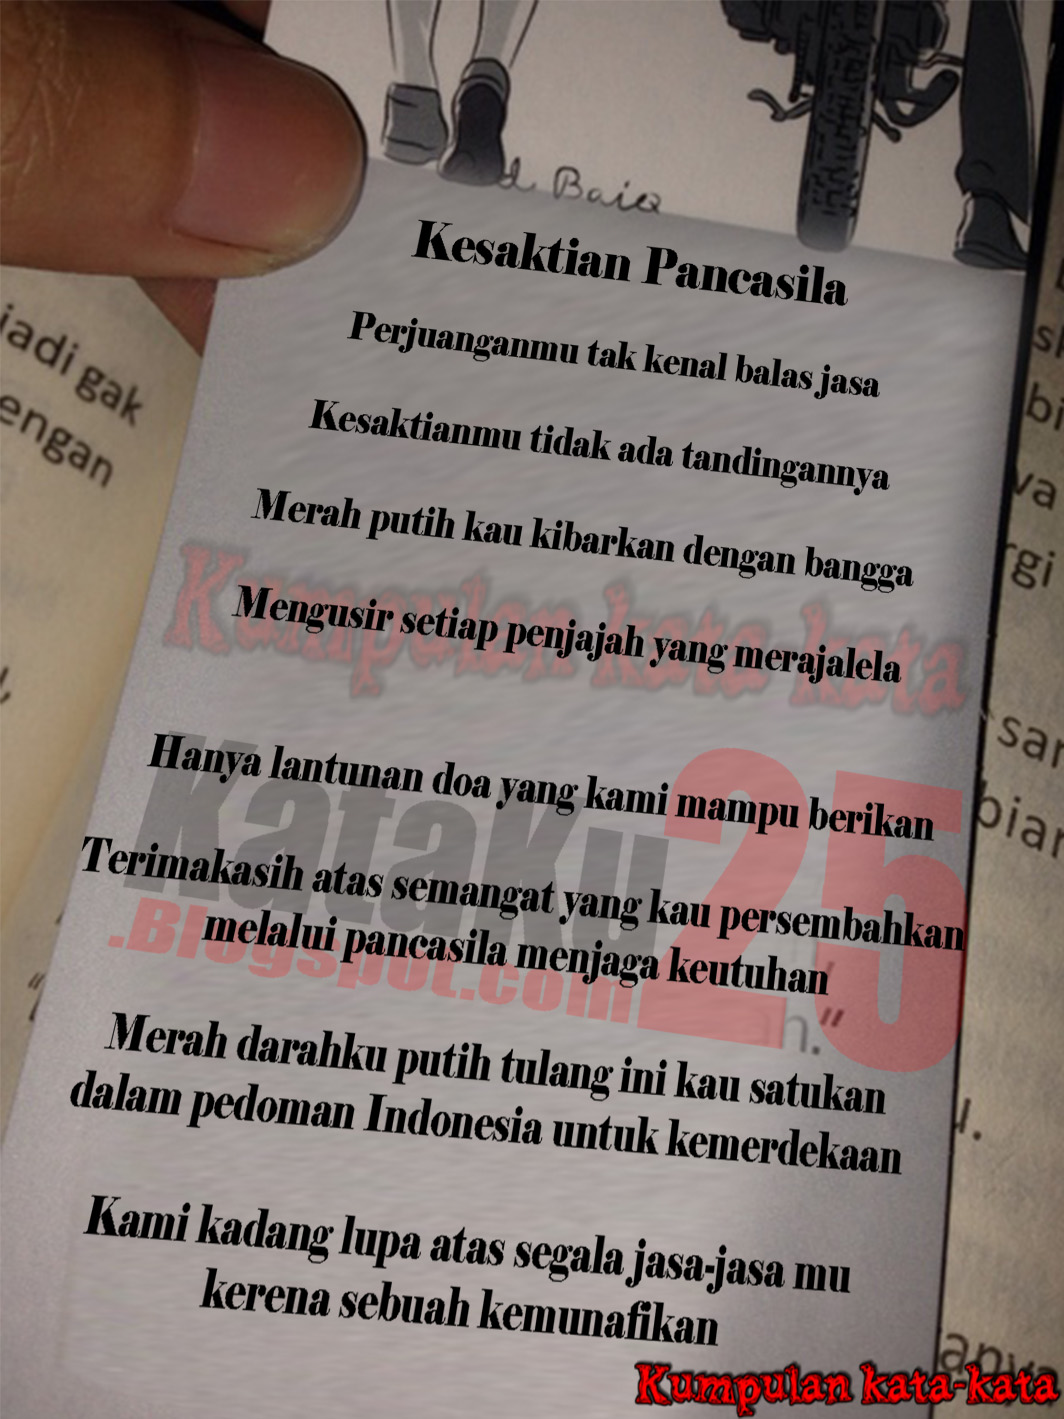 d Baiq
Kesaktian Pancasila
Perjuanganmu tak kenal balas jasa
Kesaktianmu tidak ada tandingannya
Merah putih kau kibarkan dengan bangga
Mengusir setiap penjajah yang merajalela
Kumpulan kata-kata
Hanya lantunan doa yang kami mampu berikan
KataKu25
.Blogspot.com
Terimakasih atas semangat yang kau persembahkan
melalui pancasila menjaga keutuhan
Merah darahku putih tulang ini kau satukan
dalam pedoman Indonesia untuk kemerdekaan
Kami kadang lupa atas segala jasa-jasa mu
kerena sebuah kemunafikan
Kumpulan kata-kata
iadi gak
engan
va
rgi
sar
bian
h."
u.
anya